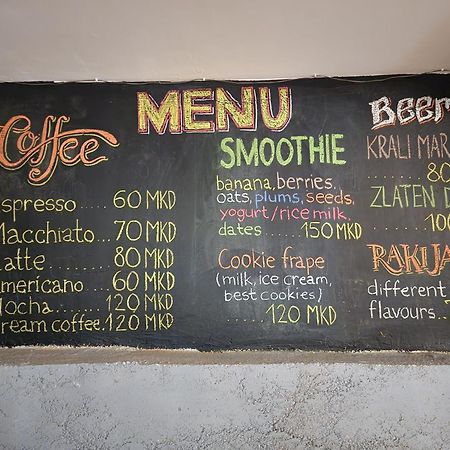 MENU
Coffee
spresso ..... 60 MKD
Macchiato ... 70 MKD
atte ......... 80 MKD
mericano .... 60 MKD
Mocha ...... 120 MKD
ream coffee. 120 MKD
SMOOTHIE
banana, berries,
oats, plums, seeds,
yogurt/rice milk,
dates ...... 150 MKD
Cookie frape
(milk, ice cream,
best cookies)
........ 120 MKD
Beer
KRALI MAR
........ 80
ZLATEN D
........ 100
RAKIJA
different
flavours..